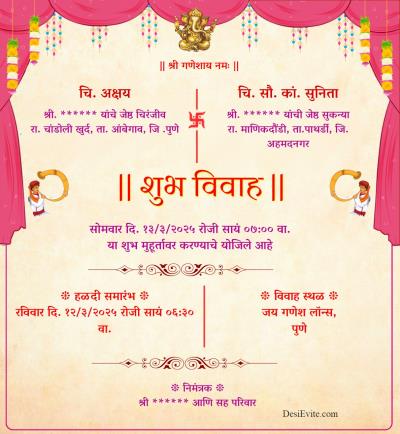 || श्री गणेशाय नमः ||
चि. अक्षय
श्री. ****** यांचे जेष्ठ चिरंजीव
रा. चांडोली खुर्द, ता. आंबेगाव, जि .पुणे
चि. सौ. कां. सुनिता
श्री. ****** यांची जेष्ठ सुकन्या
रा. माणिकदौंडी, ता.पाथर्डी, जि.
अहमदनगर
|| शुभ विवाह ||
सोमवार दि. १३/३/२०२५ रोजी सायं ०७:०० वा.
या शुभ मुहूर्तावर करण्याचे योजिले आहे
❊ हळदी समारंभ ❊
रविवार दि. १२/३/२०२५ रोजी सायं ०६:३०
वा.
❊ विवाह स्थळ ❊
जय गणेश लॉन्स,
पुणे
❊ निमंत्रक ❊
श्री ****** आणि सह परिवार
DesiEvite.com